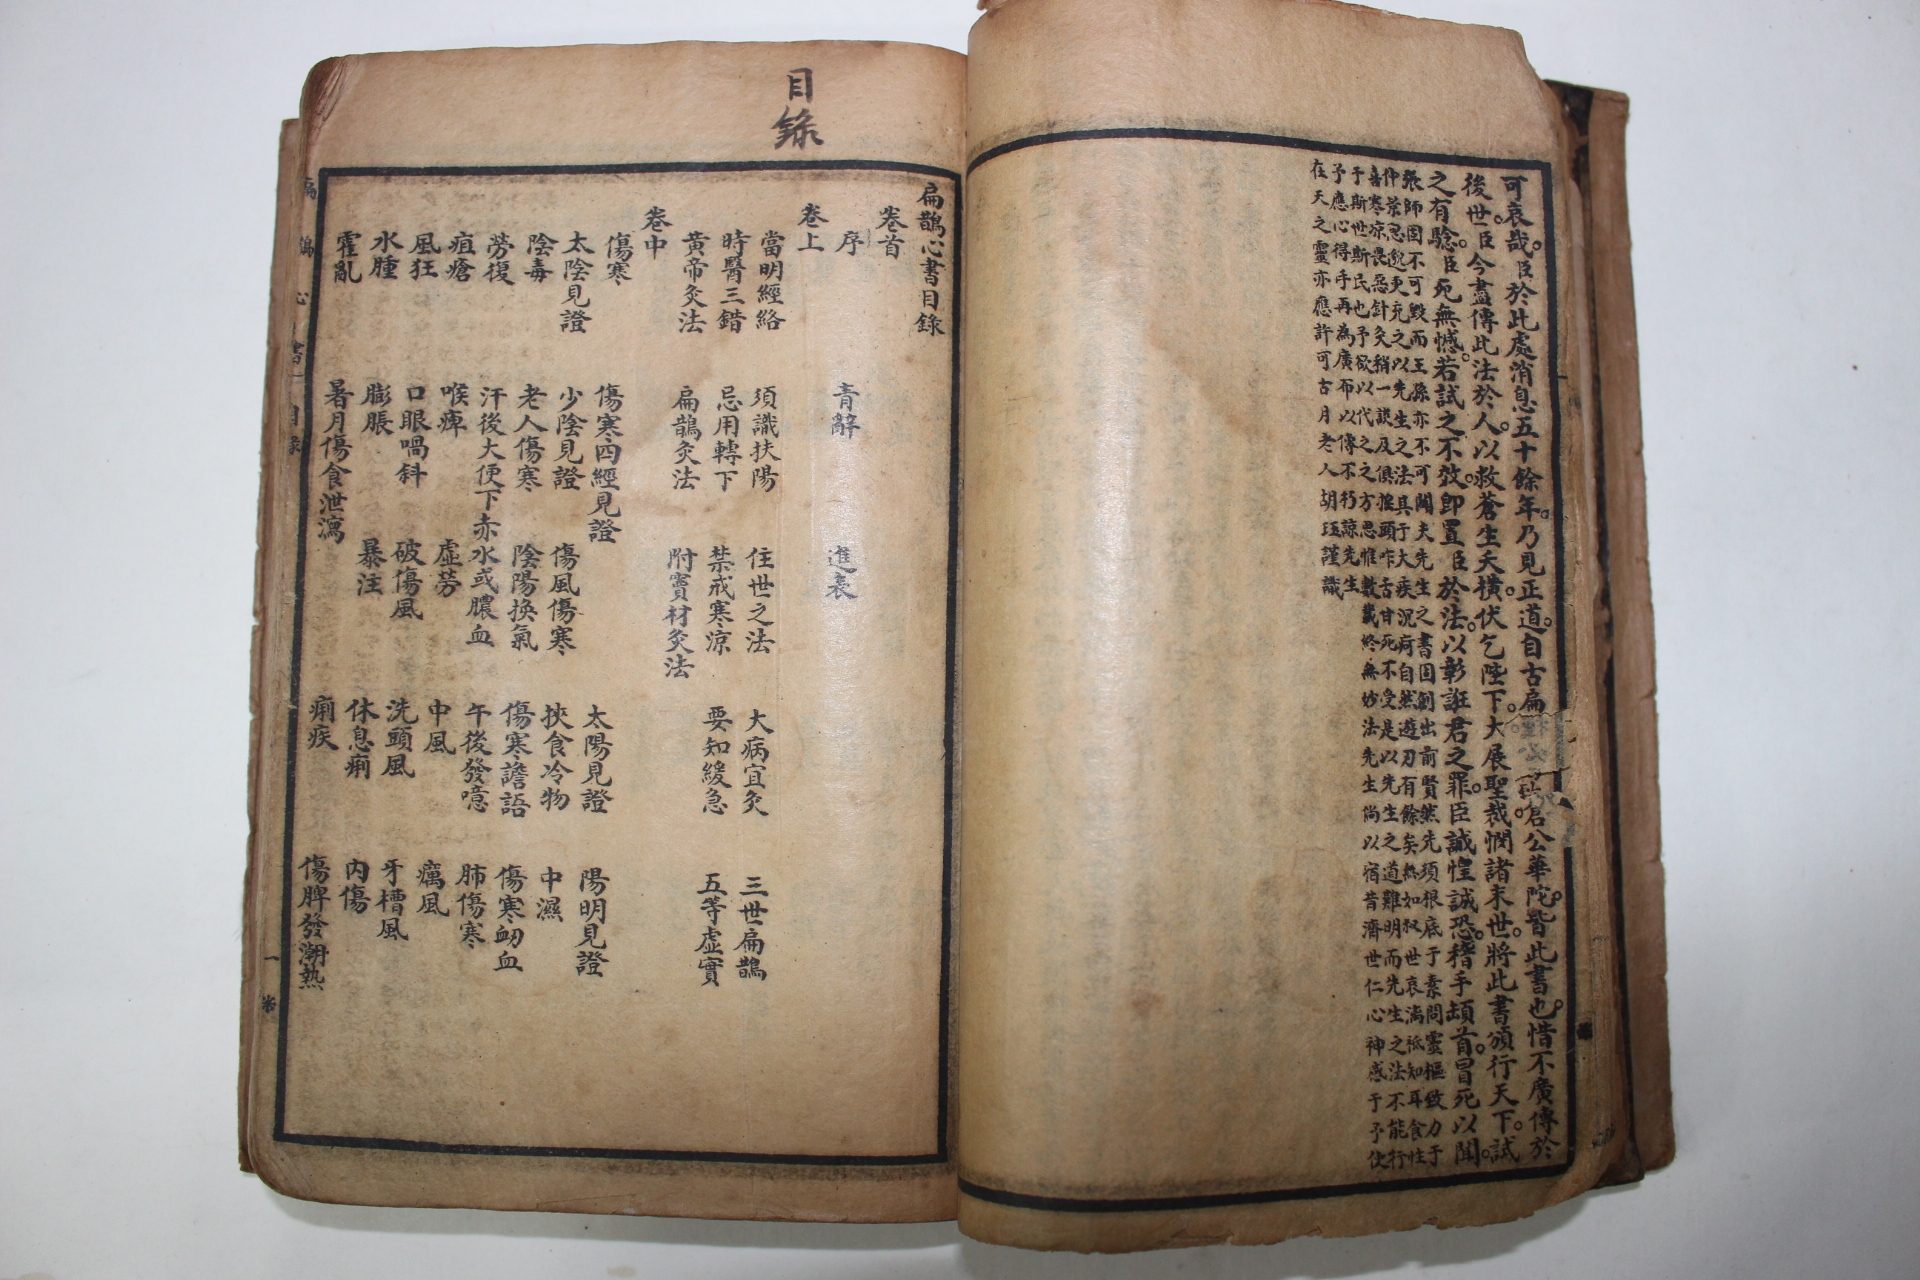 可哀哉。臣於此處消息五十餘年。乃見正道。自古扁倉公華陀。皆此書也。惜不廣傳於
後世。臣今盡傳此法於人。以救蒼生夭橫。伏乞陛下。大展聖裁。憫諸末世。將此書頒行天下。試
之有驗。臣死無憾。若試之不效。即置臣於法。以彰誑君之罪。臣誠惶誠恐。稽手頓首。冒死以聞。
張師固不可毀而王孫亦不可聞夫先生之書固創出前賢然先須根底于素問靈樞致力于
仲景思邈更充之以先生之法具于大疾沉疴自然遊刃有餘矣無如叔世衰漓祗知耳食性
喜寒凉畏惡針灸稍一談及俱搖頭咋舌甘死不受是以先生之道難明而先生之法不能行
于斯世斯民也予欲以代之之方思惟數載終無妙法先生尚以宿昔濟世仁心神感于予使
予應心得手再為廣布以傳不朽諒先生
在天之靈亦應許可古月老人胡珏謹識
目錄
扁鵲心書目錄
卷首
序 青辭 進表
卷上
當明經絡 須識扶陽 住世之法 大病宜灸 三世扁鵲
時醫三錯 忌用轉下 禁戒寒涼 要知緩急 五等虛實
黄帝灸法 扁鵲灸法 附竇材灸法
卷中
傷寒 傷寒四經見證 太陽見證 陽明見證
太陰見證 少陰見證 傷風傷寒 挾食冷物 中濕
陰毒 老人傷寒 陰陽換氣 傷寒譫語 傷寒衂血
勞復 汗後大便下赤水或膿血 午後發噫 肺傷寒
疽瘡 喉痺 虛勞 中風 癘風
風狂 口眼喎斜 破傷風 洗頭風 牙槽風
水腫 膨脹 暴注 休息痢 內傷
霍亂 暑月傷食泄瀉 痢疾 傷脾發潮熱
扁鵲心書 目錄 一